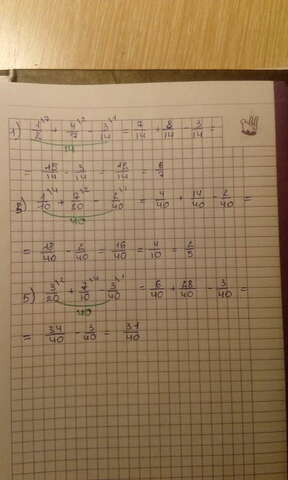 1) 1/2 + 4/7 - 3/14 = 7/14 + 8/14 - 3/14 =
14
= 15/14 - 3/14 = 12/14 = 6/7
3) 1/10 + 7/20 - 2/40 = 4/40 + 14/40 - 2/40 =
40
= 18/40 - 2/40 = 16/40 = 4/10 = 2/5
5) 3/20 + 7/10 - 3/40 = 6/40 + 28/40 - 3/40 =
40
= 34/40 - 3/40 = 31/40